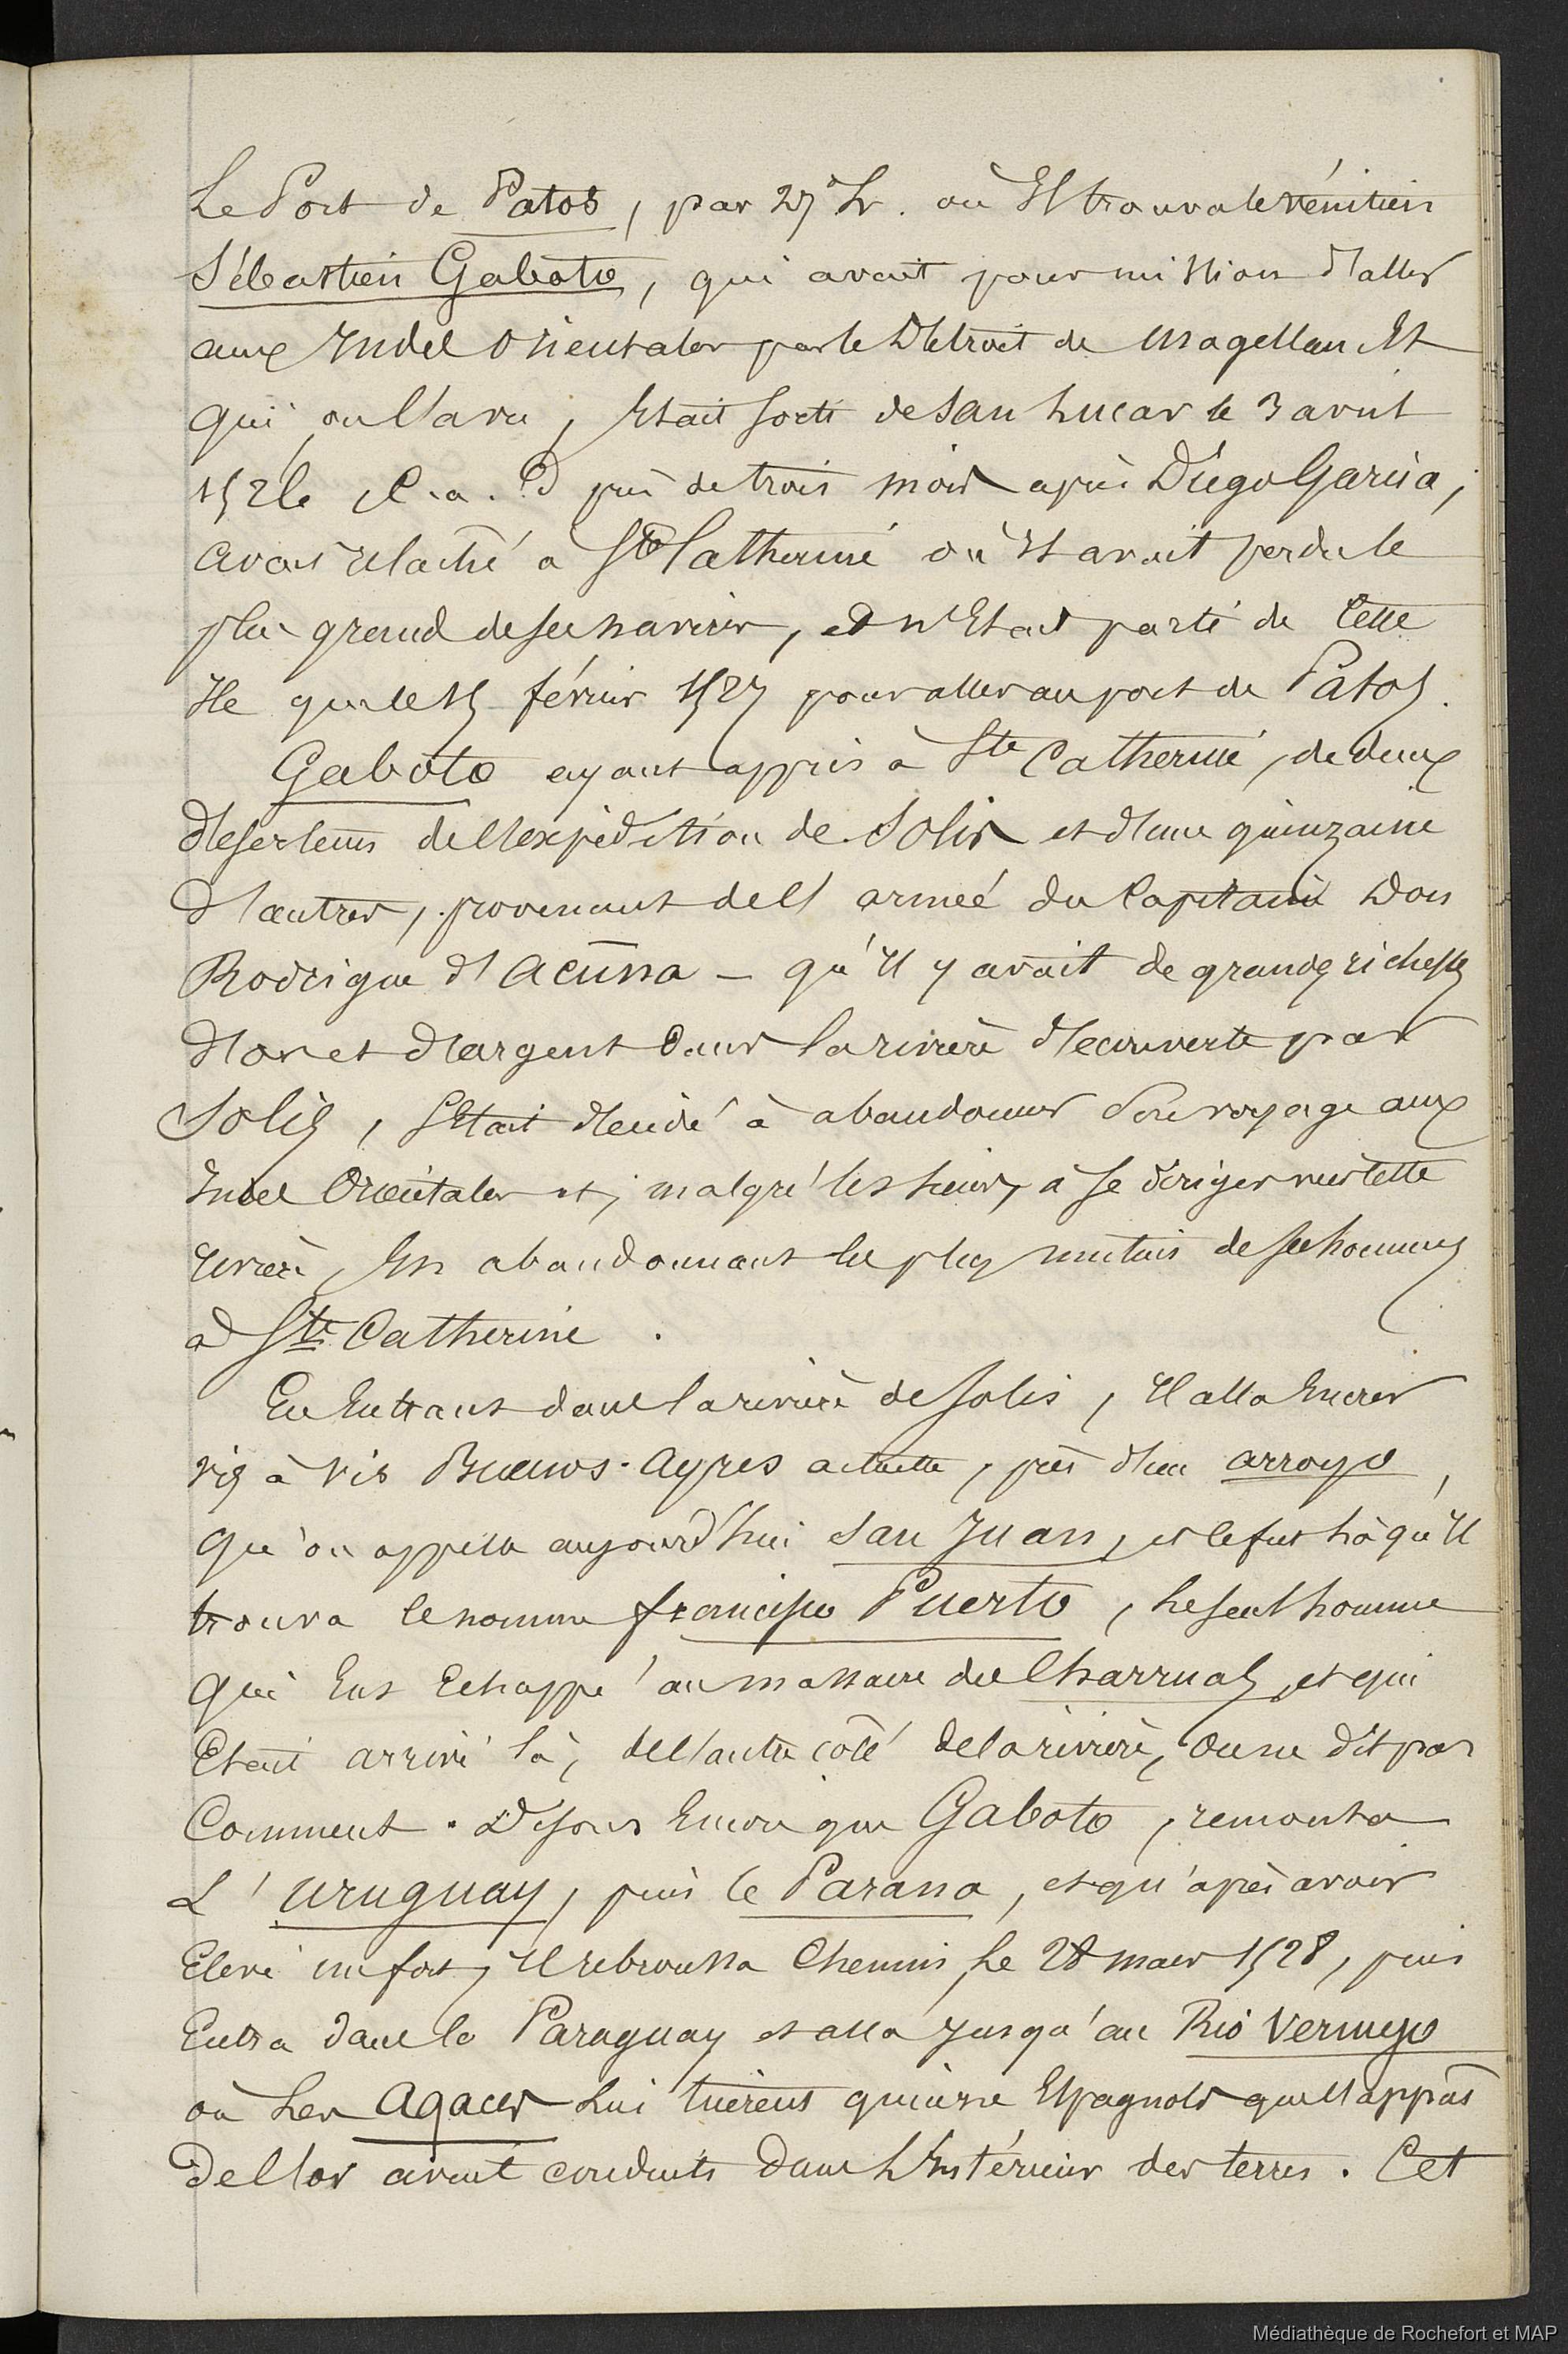 Le Port de Patos, par 27° L. où Il trouva le vénitien
Sébastien Gaboto, qui avait pour mission d'aller
aux Indes Orientales par le Détroit de Magellan Et
qui, on l'a vu, Etait sorti de San Lucar le 3 avril
1526 c.a.d près de trois mois après Diégo Garcia,
avait relaché a Ste Catherine où Il avait perdu le
plus grand de ses navires, et n'Etait parti de cette
Ile que le 15 février 1527 pour aller au port de Patos.
Gaboto ayant appris à Ste Catherine, de deux
déserteurs de l'expédition de Solis et d'une quinzaine
d'autres, provenant de l'armée du Capitaine Don
Rodrigue d'Acunna - qu'Il y avait de grandes richesses
d'or et d'argent dans la rivière découverte par
Solis, s'Etait décidé à abandonner son voyage aux
Indes Orientales et, malgré les siens, a se diriger vers cette
rivière, En abandonnant les plus mutins de ses hommes
a Ste Catherine.
En Entrant dans la rivière de Solis, Il alla Encrer
vis à vis Buenos-Ayres actuelle, près d'un arroyo,
qu'on appelle aujourd'hui San Juan, et ce fut là qu'Il
trouva le nommé francisco Puerto, le seul homme
qui Eut Echappé au massacre des Charruas, et qui
Etait arrivé là, de l'autre côté de la rivière, On ne dit pas
Comment. Disons Encore que Gaboto, remonta
L'Uruguay, puis le Parana, et qu'après avoir
Elevé un fort, Il rebroussa Chemin, le 28 mars 1528, puis
Entra dans le Paraguay et alla jusqu'au Rio Vermejo
où Les Agaces Lui tuèrent quinze Espagnols que l'appas
de l'or avait conduits dans L'Intérieur des terres. Cet
Médiathèque de Rochefort et MAP